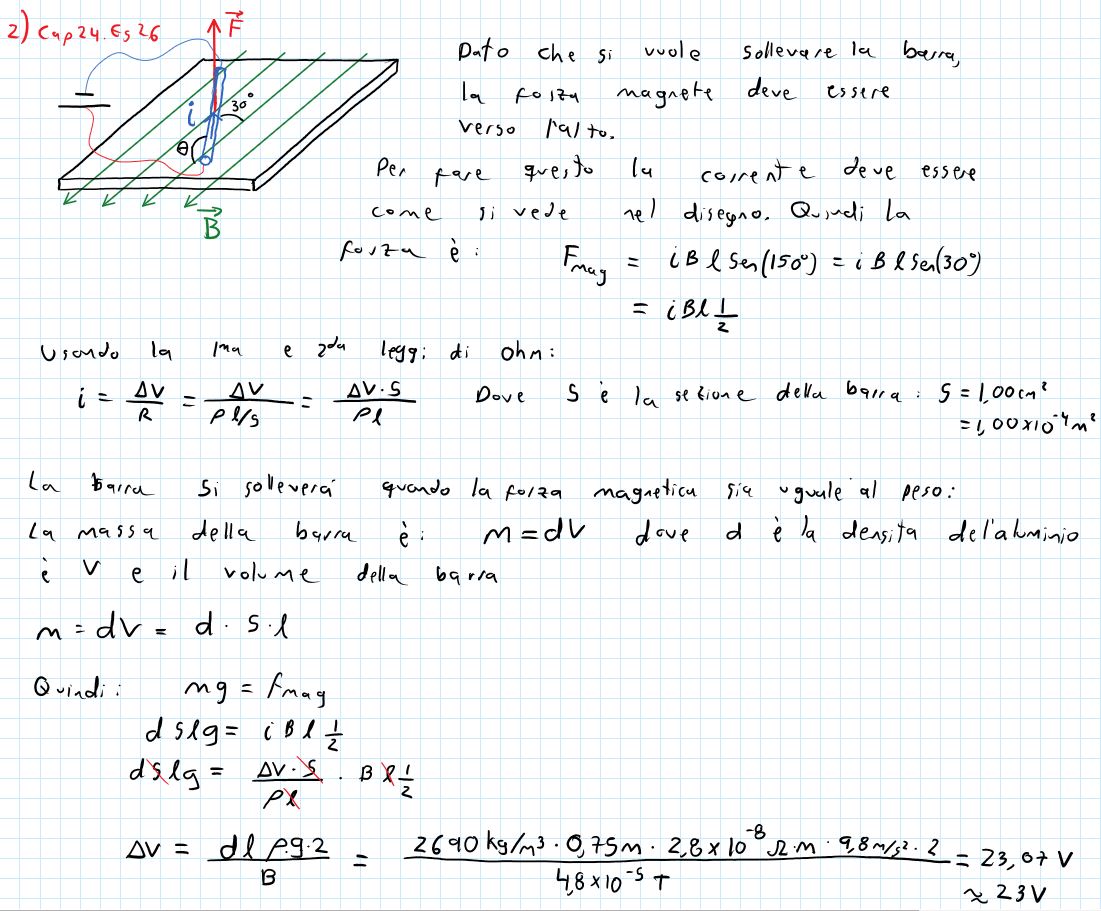 2) Cap24.Es26
F
30°
i
θ
B
Dato che si vuole sollevare la barra,
la forza magnete deve essere
verso l'alto.
Per fare questo la corrente deve essere
come si vede nel disegno. Quindi la
forza è:
F_mag = i B l Sen(150°) = i B l Sen(30°)
= i B l 1/2
Usando la 1ma e 2da leggi di ohm:
i = ΔV/R = ΔV/(ρ l/s) = ΔV·S/(ρl) Dove S è la sezione della barra: S = 1,00cm²
= 1,00×10⁻⁴m²
La barra si solleverà quando la forza magnetica sia uguale al peso:
La massa della barra è: m = dV dove d è la densita del'aluminio
è V e il volume della barra
m = dV = d · S · l
Quindi: mg = Fmag
d S l g = i B l 1/2
d S l g = ΔV·S/(ρl) · B l 1/2
ΔV = d l ρ.g.2/B = 2690 kg/m³ · 0,75m · 2,8×10⁻⁸ Ω·m · 9,8m/s² · 2/(4,8×10⁻⁵ T) = 23,07 V
≈ 23V